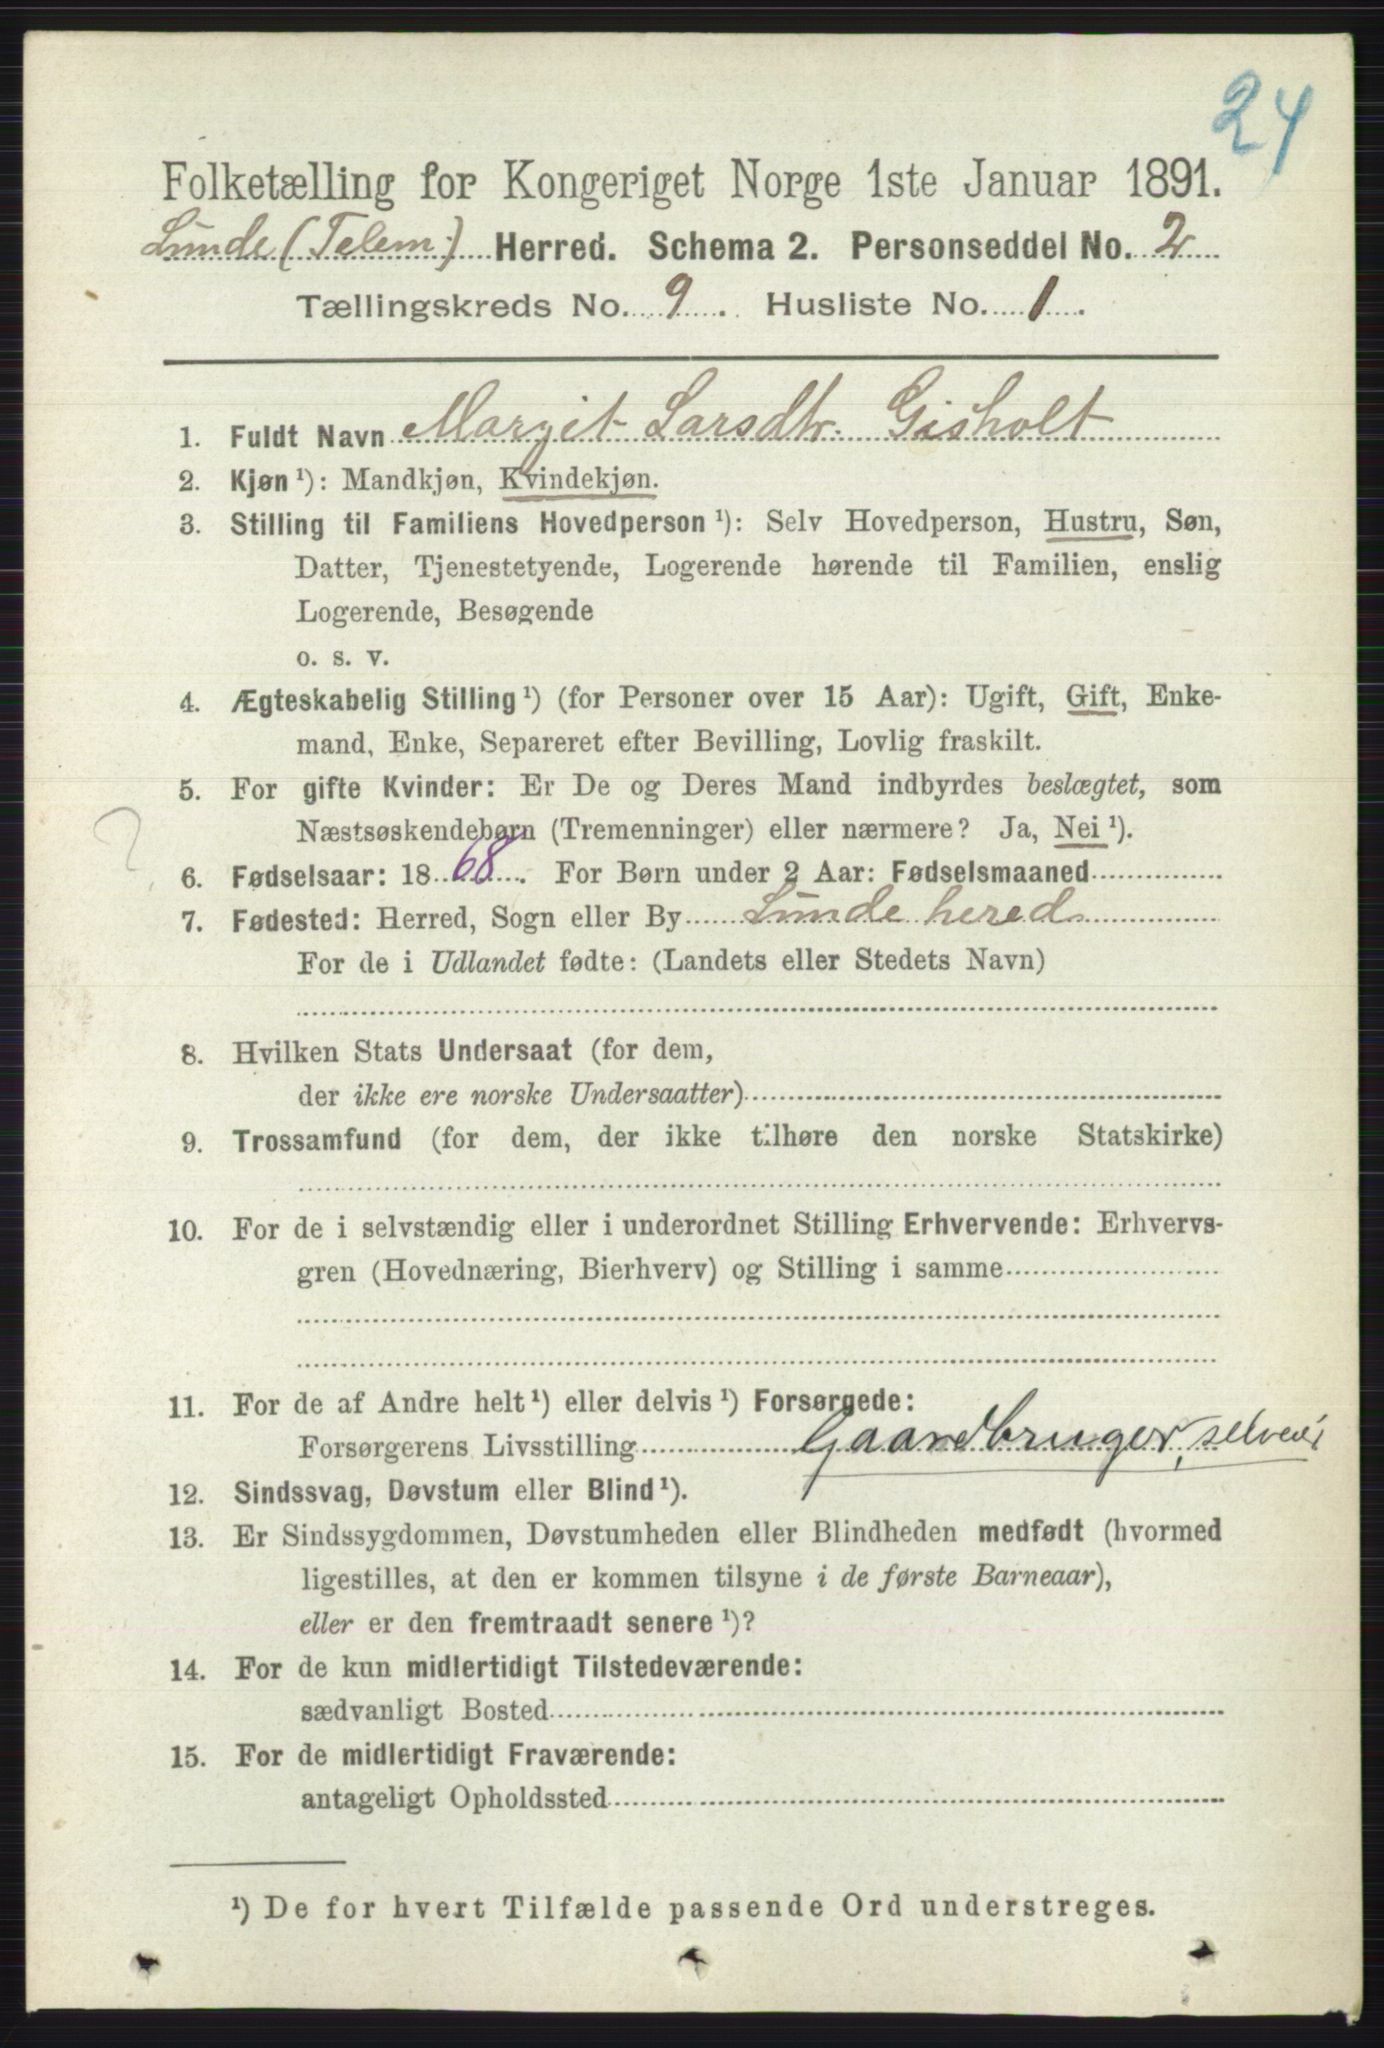 24
Folketælling for Kongeriget Norge 1ste Januar 1891.
Lunde (Telem.) Herred. Schema 2. Personseddel No. 2
Tællingskreds No. 9. Husliste No. 1.
1. Fuldt Navn Margit Larsdtr. Gisholt
2. Kjøn ¹): Mandkjøn, Kvindekjøn.
3. Stilling til Familiens Hovedperson ¹): Selv Hovedperson, Hustru, Søn,
Datter, Tjenestetyende, Logerende hørende til Familien, enslig
Logerende, Besøgende
o. s. v.
4. Ægteskabelig Stilling ¹) (for Personer over 15 Aar): Ugift, Gift, Enke-
mand, Enke, Separeret efter Bevilling, Lovlig fraskilt.
5. For gifte Kvinder: Er De og Deres Mand indbyrdes beslægtet, som
Næstsøskendebørn (Tremenninger) eller nærmere? Ja, Nei ¹).
?
6. Fødselsaar: 1868. For Børn under 2 Aar: Fødselsmaaned
7. Fødested: Herred, Sogn eller By Lunde hered
For de i Udlandet fødte: (Landets eller Stedets Navn)
8. Hvilken Stats Undersaat (for dem,
der ikke ere norske Undersaatter)
9. Trossamfund (for dem, der ikke tilhøre den norske Statskirke)
10. For de i selvstændig eller i underordnet Stilling Erhvervende: Erhvervs-
gren (Hovednæring, Bierhverv) og Stilling i samme
11. For de af Andre helt ¹) eller delvis ¹) Forsørgede:
Forsørgerens Livsstilling Gaardbruger, selveier
12. Sindssvag, Døvstum eller Blind ¹).
13. Er Sindssygdommen, Døvstumheden eller Blindheden medfødt (hvormed
ligestilles, at den er kommen tilsyne i de første Barneaar),
eller er den fremtraadt senere ¹)?
14. For de kun midlertidigt Tilstedeværende:
sædvanligt Bosted
15. For de midlertidigt Fraværende:
antageligt Opholdssted
¹) De for hvert Tilfælde passende Ord understreges.